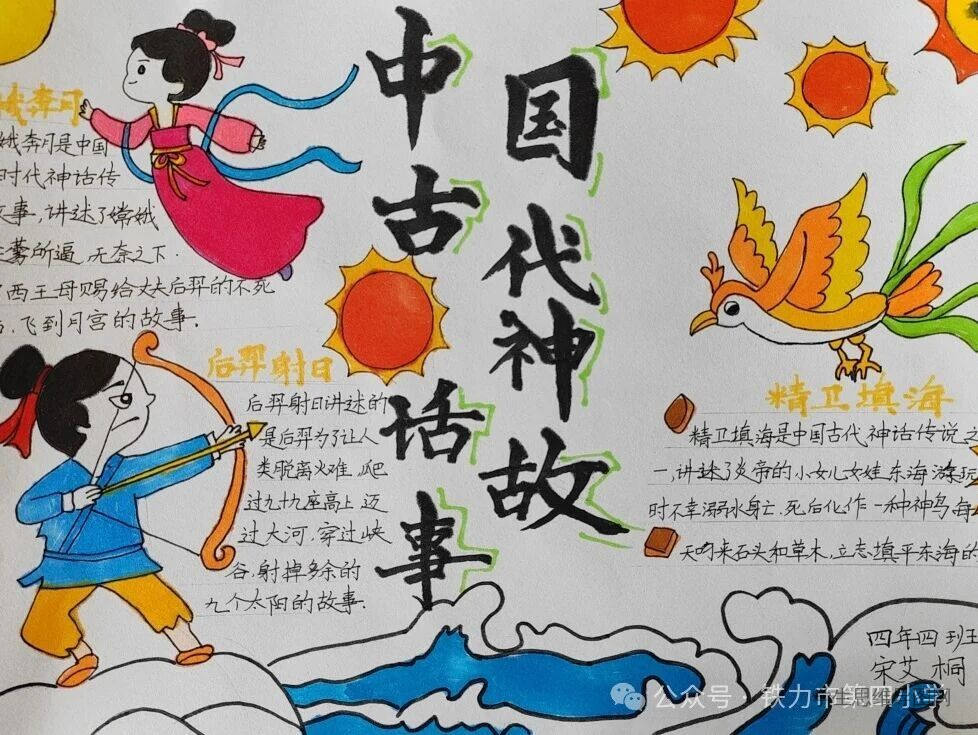 中国古代神话故事
娥奔月
娥奔月是中国
时代神话传
事,讲述了嫦娥
蒙所逼,无奈之下.
西王母赐给丈夫后羿的不死
飞到月宫的故事.
后羿射日
后羿射日讲述的
是后羿为了让人
类脱离火难,爬
过九十九座高上,迈
过大河,穿过峡
谷,射掉多余的
九个太阳的故事.
精卫填海
精卫填海是中国古代神话传说之
一,讲述了炎帝的小女儿女娃东海游玩
时不幸溺水身亡,死后化作一种神鸟,每
天叼来石头和草木,立志填平东海的
四年四班
宋艾桐
公众号·铁力市第四小学